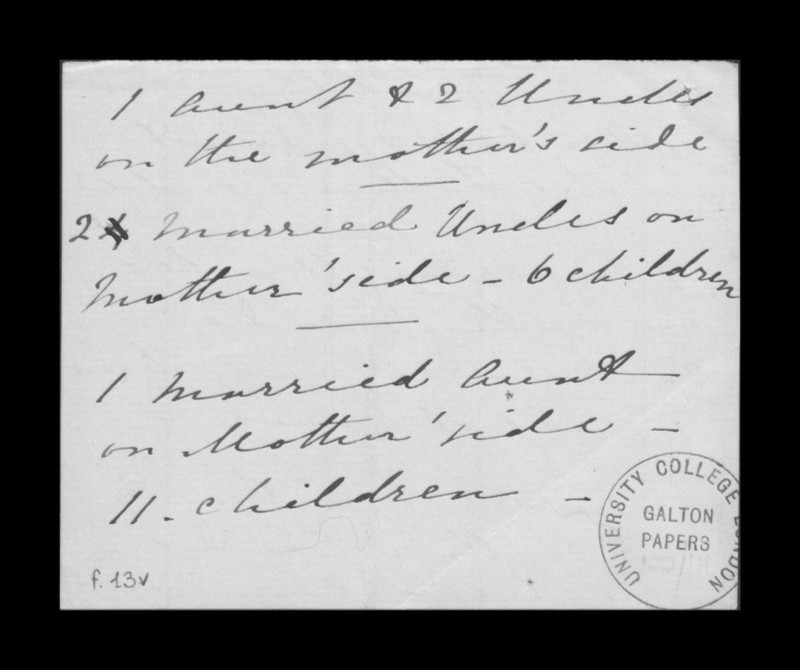 1 aunt & 2 Uncles
on the mother's side
2 Married Uncles on
Mother 'side - 6 children
1 Married Aunt
on Mother 'side -
11. children -
UNIVERSITY COLLEGE LONDON
GALTON
PAPERS
f. 13v